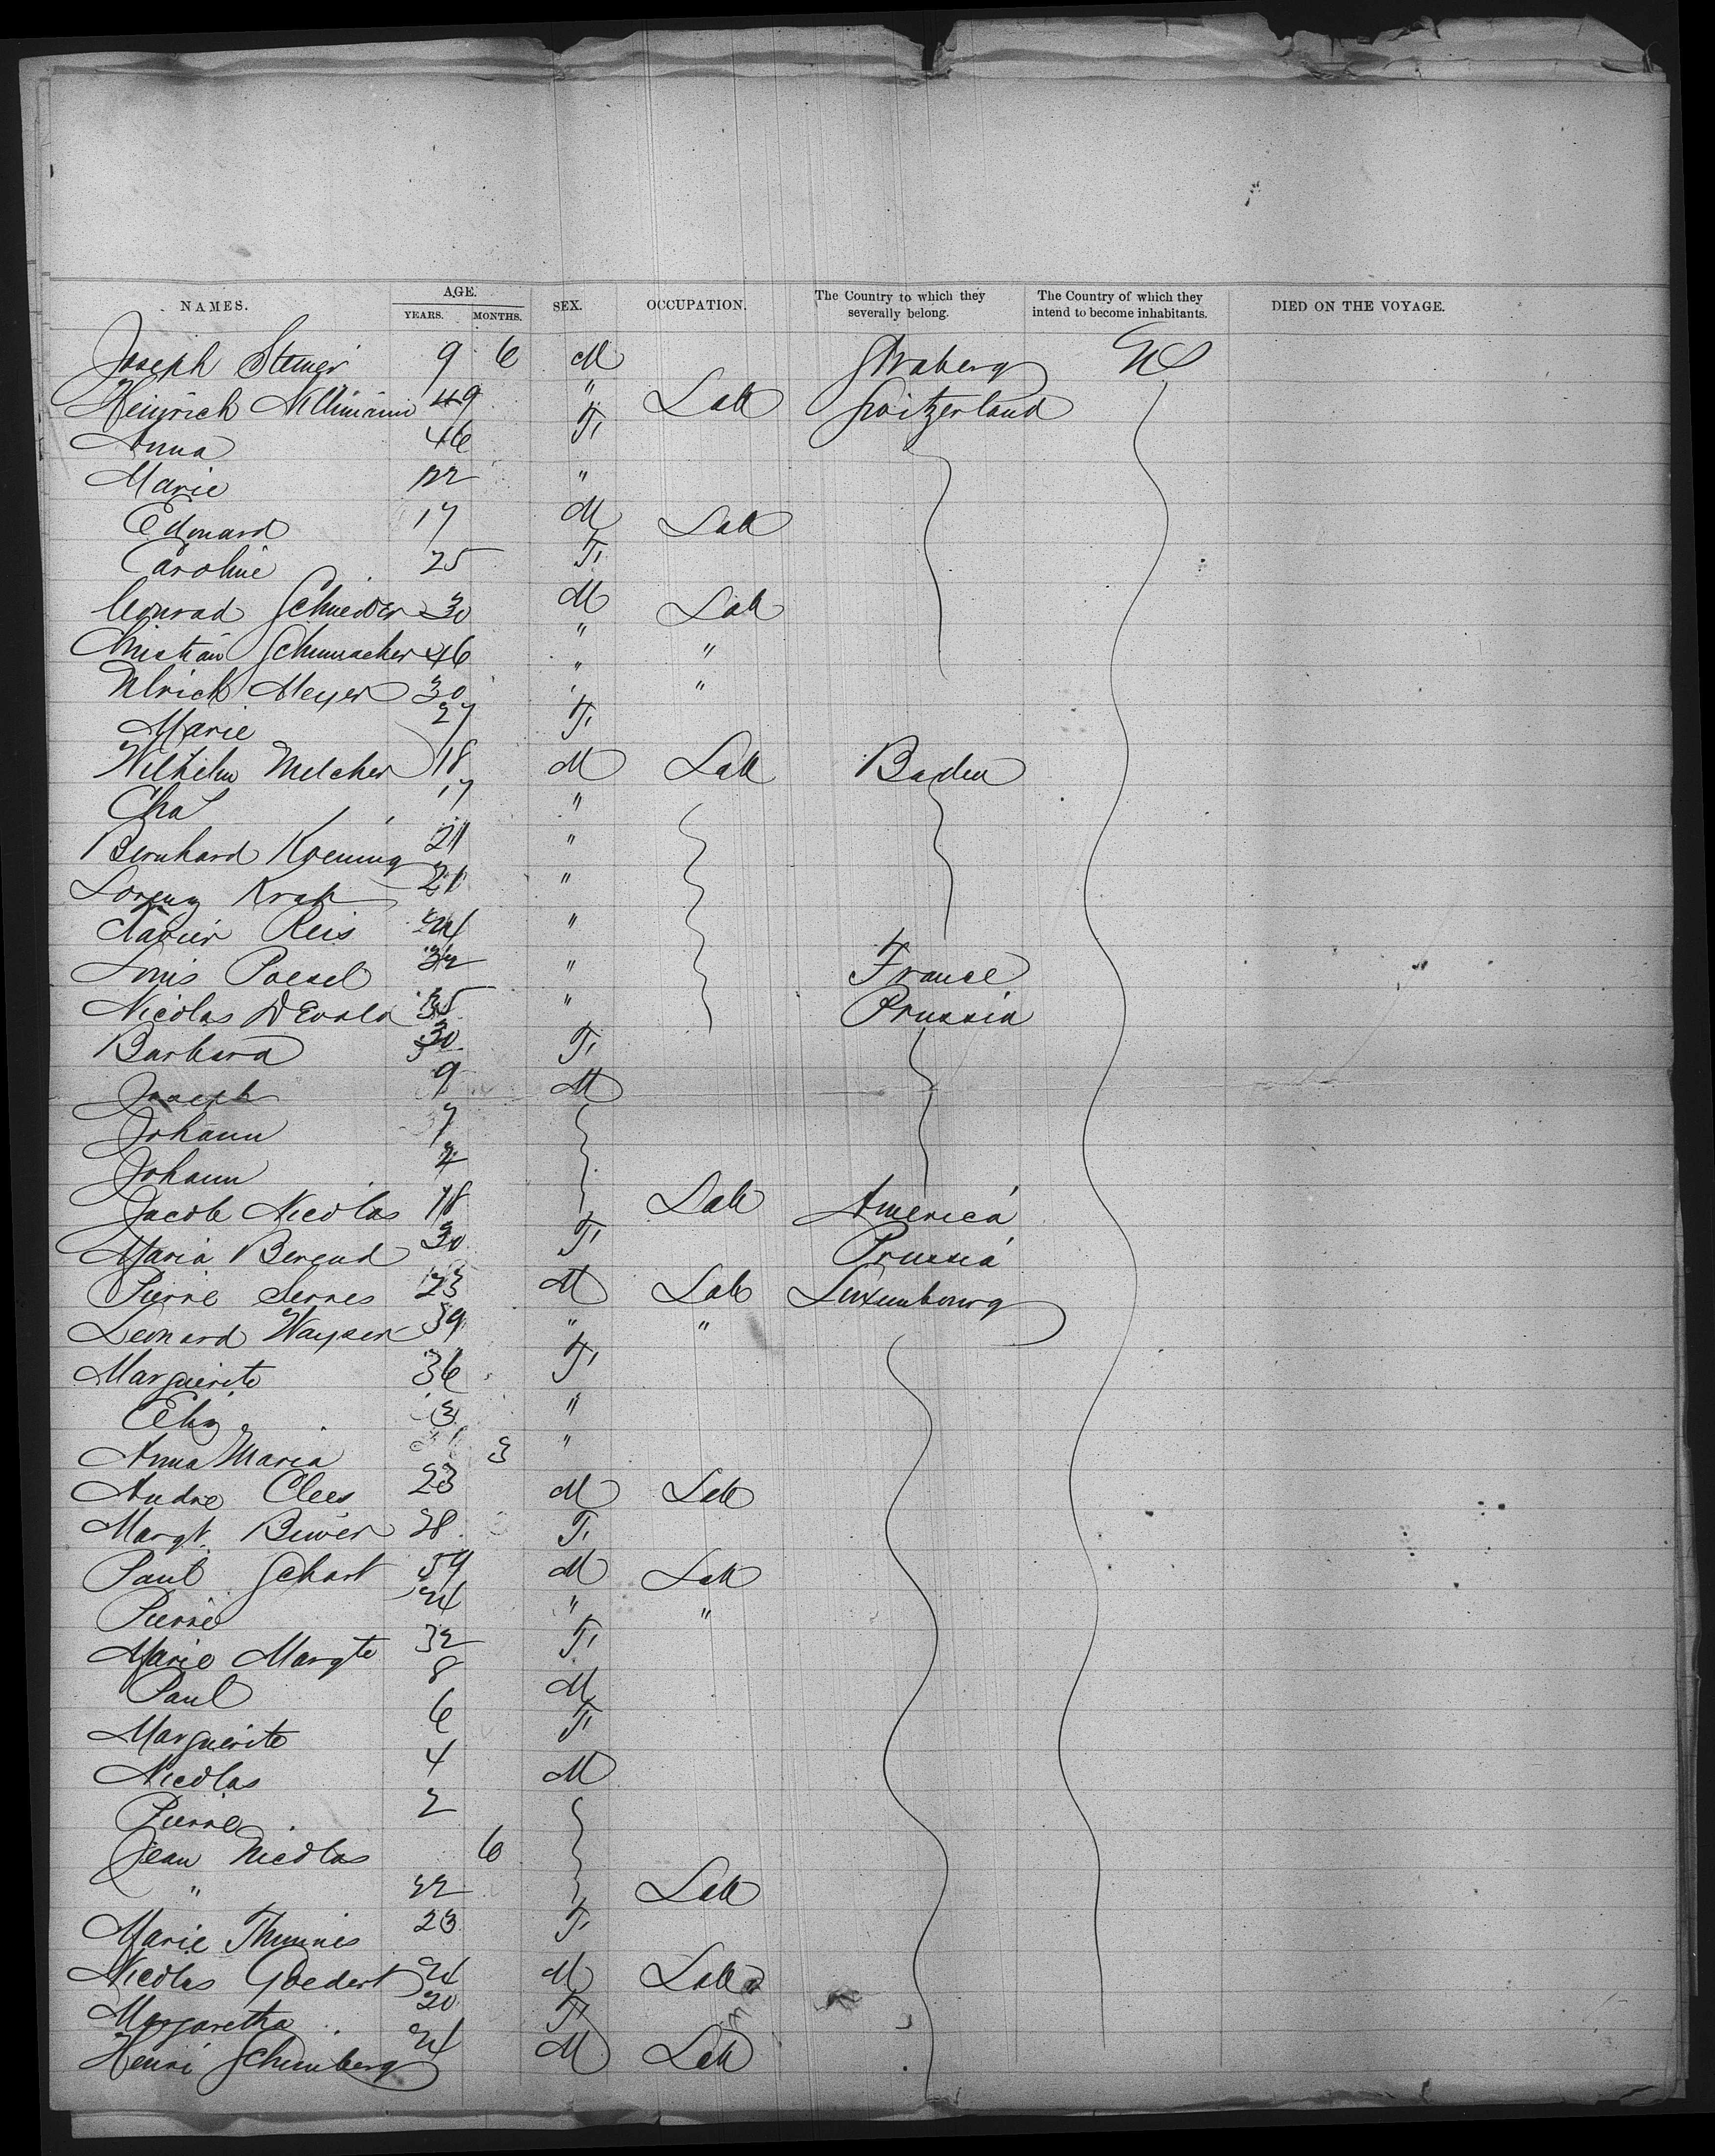 NAMES. AGE. YEARS. MONTHS. SEX. OCCUPATION. The Country to which they severally belong. The Country of which they intend to become inhabitants. DIED ON THE VOYAGE.
Joseph 9 6 M US
Heinrich 49 " Lab Switzerland
Anna 46 F
Marie 22 "
Edouard 17 M Lab
Caroline 25 F
Conrad Schneider 30 M Lab
Christian Schumacher 46 " "
Ulrich Meyer 30 " "
Marie 27 F
Wilhelm Melcher 18 M Lab Baden
Cha 17 "
Bernhard Koening 21 "
Lorenz 21 "
Xavier Reis 24 "
Louis 32 " France
Nicolas 35 " Prussia
Barbara 30 F
Joseph 9 M
Johann 7
Johann
Jacob Nicolas 18 Lab America
Maria 30 F Prussia
Pierre Serres 23 M Lab Luxembourg
Leonard Wayser 39 " "
Marguerite 36 F
Eliz 3 "
Anna Maria 3 "
Andre Clees 23 M Lab
Margt. Biwer 28 F
Paul Schart 59 M Lab
Pierre 34 " "
Marie Margte 32 F
Paul 8 M
Marguerite 6 F
Nicolas 4 M
Pierre 2
Jean Nicolas 6
" 22 Lab
Marie 23 F
Nicolas Goedert 24 M Lab
Margaretha 20 F
Henri Schimberg 24 M Lab